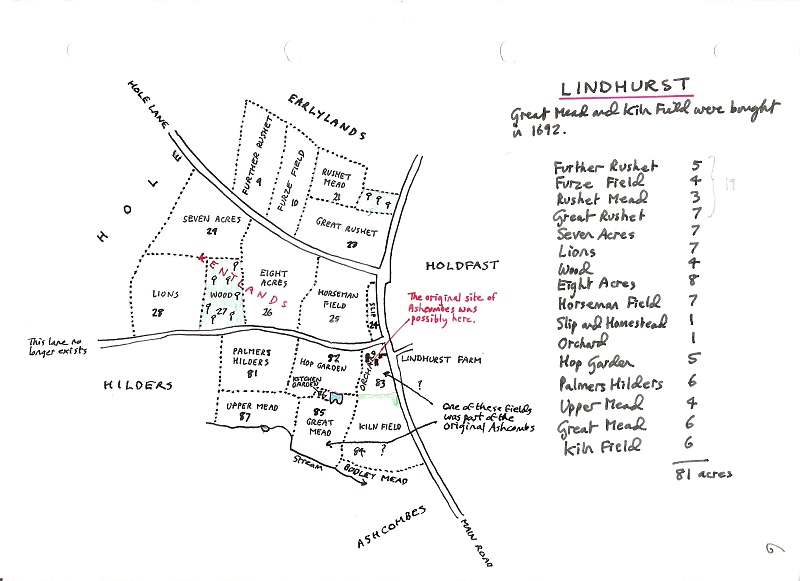 LINDHURST
Great Mead and Kiln Field were bought
in 1692.
Further Rushet 5
Furze Field 4
Rushet Mead 3
19
Great Rushet 7
Seven Acres 7
Lions 7
Wood 4
Eight Acres 8
Horseman Field 7
Slip and Homestead 1
Orchard 1
Hop Garden 5
Palmers Hilders 6
Upper Mead 4
Great Mead 6
Kiln Field 6
81 acres
HOLE LANE
EARLYLANDS
HOLE
FURTHER RUSHET
FURZE FIELD
RUSHET
MEAD
GREAT RUSHET
SEVEN ACRES
29
KENTLANDS
LIONS
28
WOOD
27
EIGHT
ACRES
26
HORSEMAN
FIELD
25
SLIP
24
HOLDFAST
The original site of
Ashcombes was
possibly here.
This lane no
longer exists
HILDERS
PALMERS
HILDERS
81
82
HOP GARDEN
KITCHEN
GARDEN
ORCHARD
83
LINDHURST FARM
?
UPPER MEAD
87
85
GREAT
MEAD
KILN FIELD
84 ?
One of these fields
was part of the
original Ashcombs
Stream
BODLEY MEAD
ASHCOMBES
MAIN ROAD